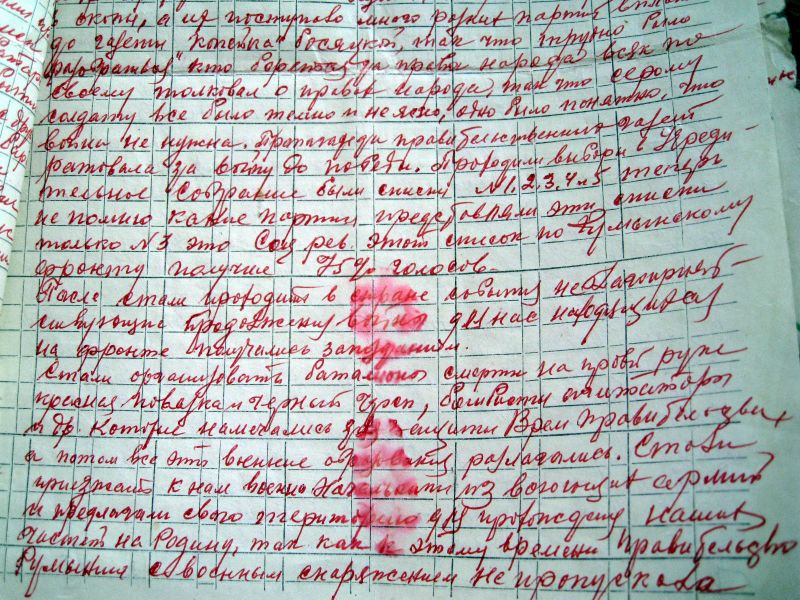 в окопы, а их поступало много разных партий вплоть
до газеты "Копейка" босяцкой, так что трудно было
разобраться кто борется за права народа всяк по
своему толковал о правах народа, так что серому
солдату все было темно и неясно, одно было понятно, что
война не нужна. Пропаганда правительственных газет
ратовала за войну до победы. Проходили выборы в Учреди-
тельное собрание были списки №1,2,3,4 и 5 теперь
не помню какие партии представляли эти списки
только №3 это Соц рев. этот список по Румынскому
фронту получил 75% голосов.
После стали проходить в стране события неблагоприят-
ствующие продолжению войны для нас находящихся
на фронте получались запозданием.
Стали организовать батальоны смерти на правой руке
красная повязка и черный череп,
и др. Которые намечались для защиты Врем Правительства,
а потом все эти военные разлагались. Стали
приезжать к нам военно из воюющих армий
и предлагали свою территорию для провождения наших
частей на Родину, так как к этому времени правительство
Румынии с военным снаряжением не пропускала